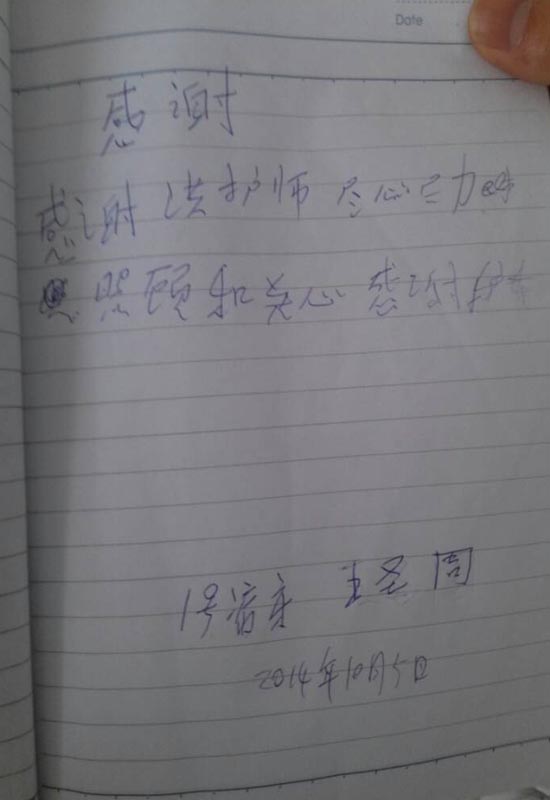 Date
感谢
感谢洪护师尽心尽力
照顾和关心 感谢
1号病床 王圣同
2014年10月5日